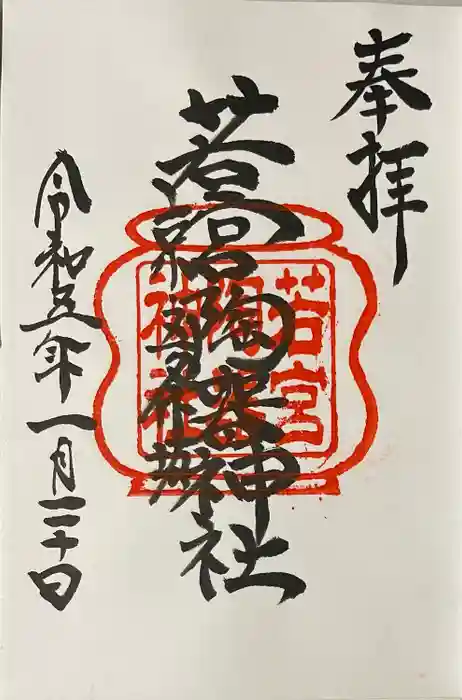 奉拝
若宮陶器神社
若宮
陶器
神社
令和五年一月二十日